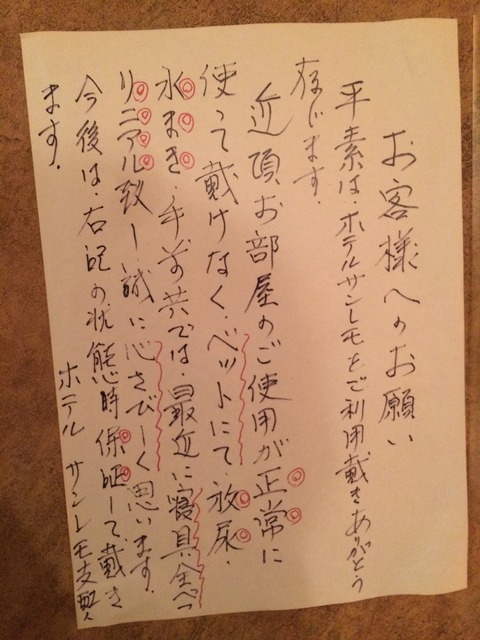 お客様へのお願い
平素は、ホテルサンレモをご利用戴きありがとう
存じます。
近頃お部屋のご使用が正常に
使って戴けなく、ベットにて、放尿、
水まき、手前共では、最近に寝具全べつ
リニアル致し誠に心さびしく思います。
今後は、右記の状態時保証して戴き
ます。
ホテル サンレモ支配人